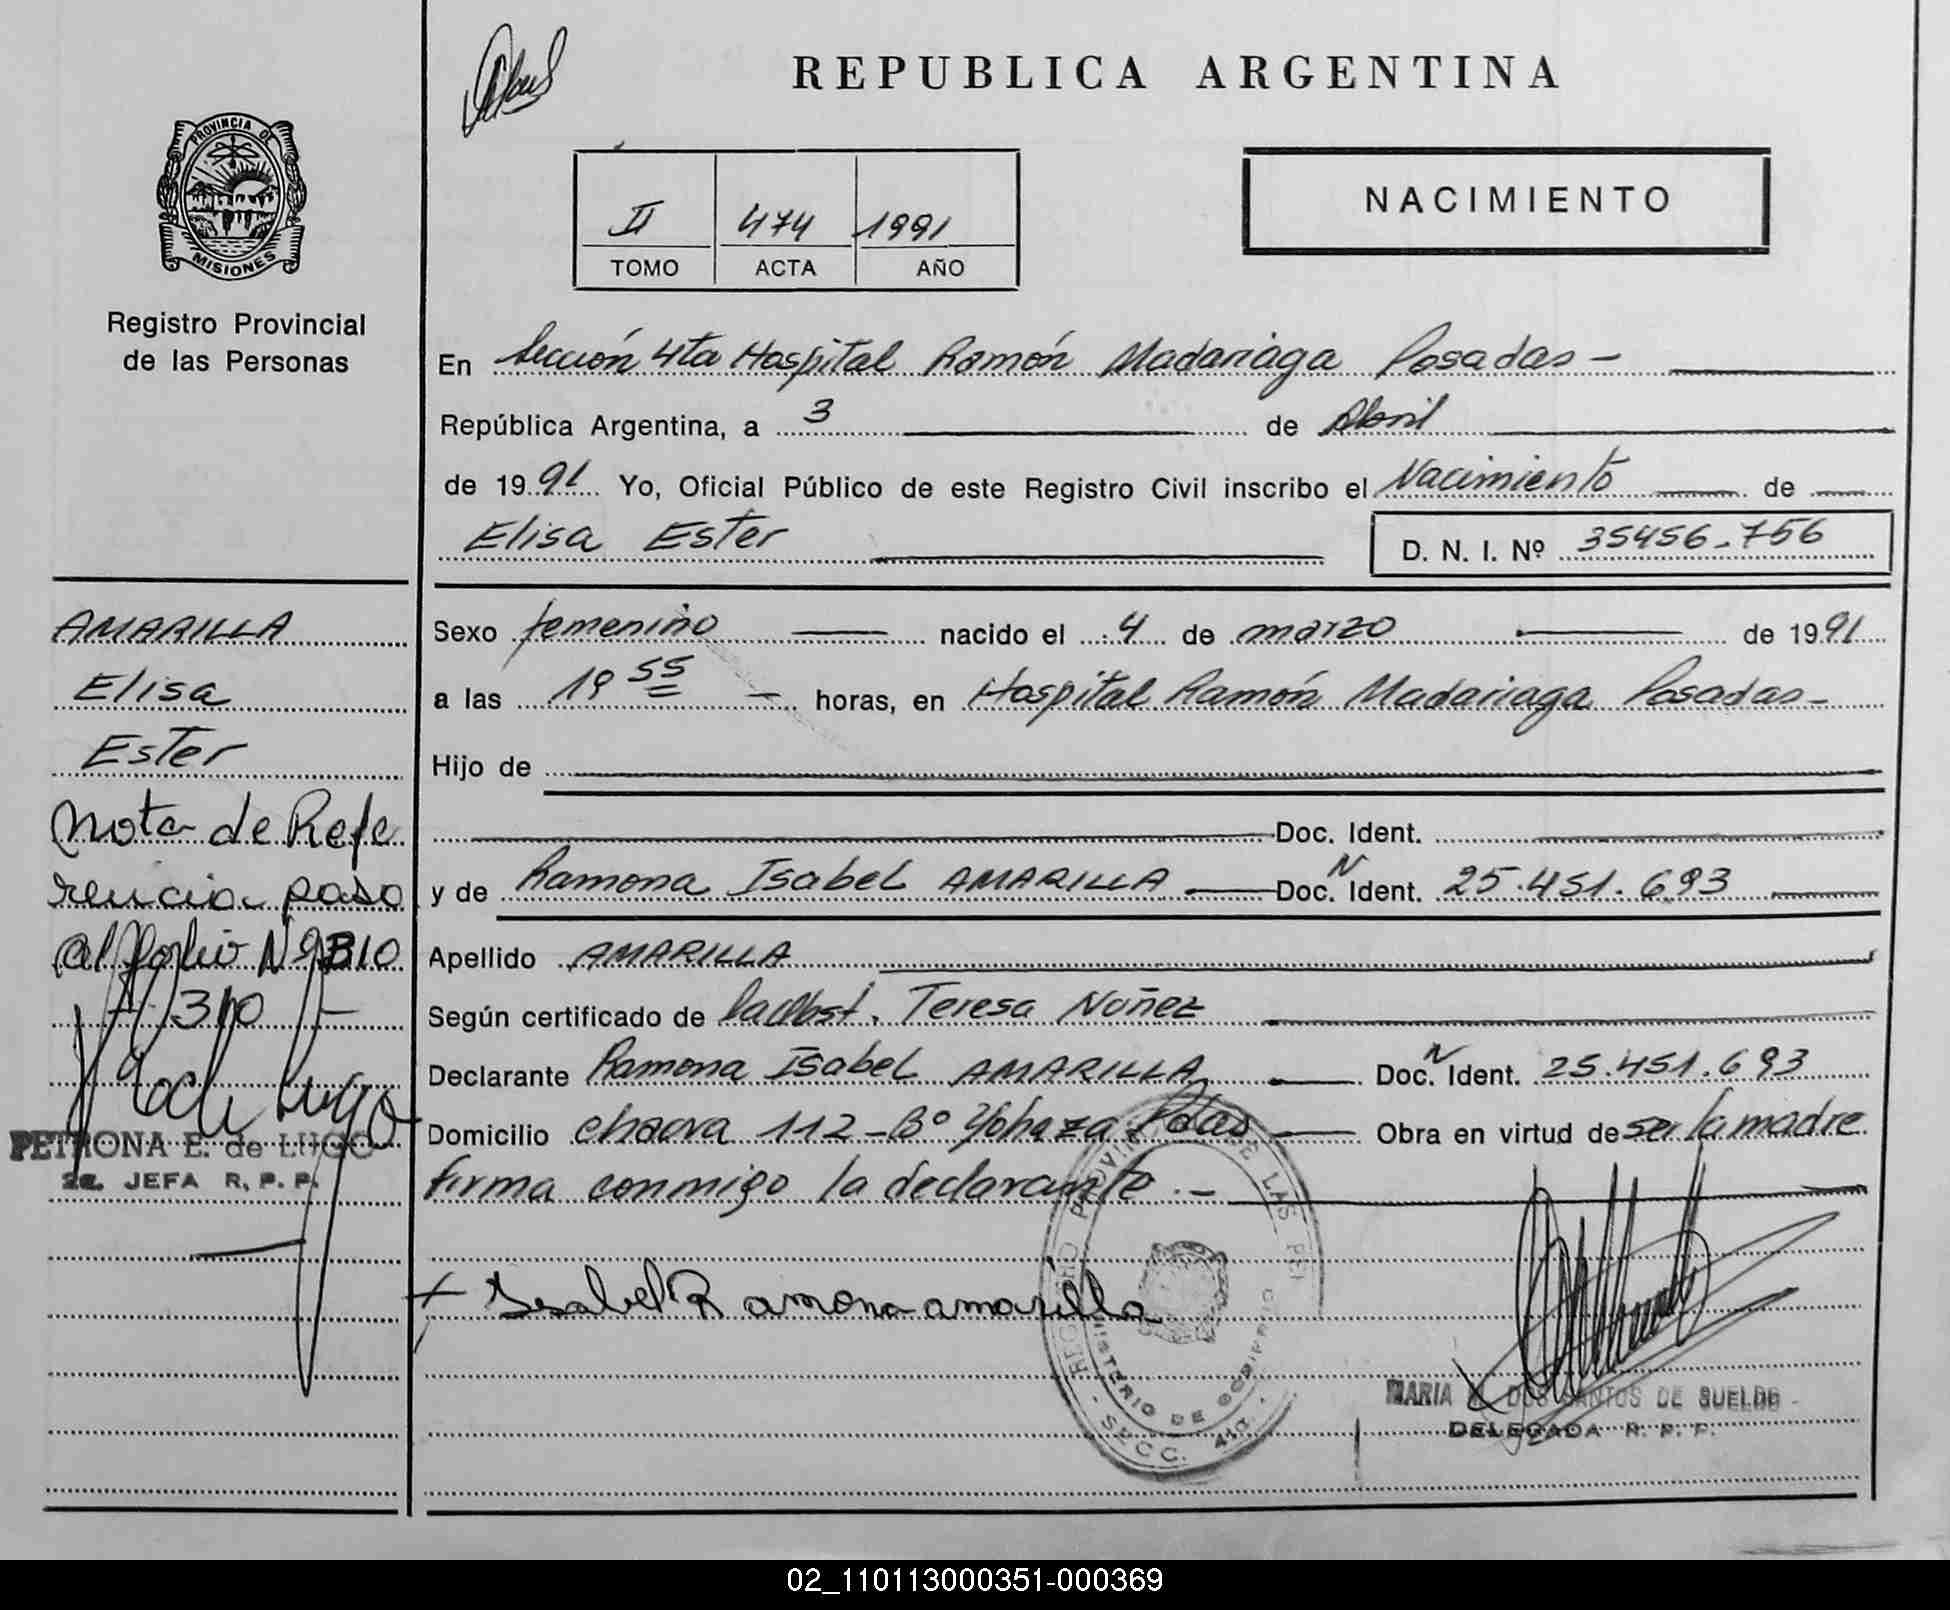 REPUBLICA ARGENTINA
PROVINCIA DE
MISIONES
Registro Provincial
de las Personas
II 474 1991
TOMO ACTA AÑO
NACIMIENTO
En Sección 4ta Hospital Ramón Madariaga Posadas -
República Argentina, a 3 de Abril
de 1991 Yo, Oficial Público de este Registro Civil inscribo el Nacimiento de
Elisa Ester D. N. I. Nº 35456.756
AMARILLA
Elisa
Ester
Nota de Refe
rencia paso
al folio Nº 310
- 310 -
PETRONA E. de LUGO
JEFA R. P. P.
Sexo femenino nacido el 4 de marzo de 1991
a las 19 55 - horas, en Hospital Ramón Madariaga Posadas -
Hijo de
Doc. Ident.
y de Ramona Isabel AMARILLA Doc. N Ident. 25.451.693
Apellido AMARILLA
Según certificado de la Obst. Teresa Nuñez
Declarante Ramona Isabel AMARILLA Doc. N Ident. 25.451.693
Domicilio chacra 112 - Bº Yohaza Pdas Obra en virtud de ser la madre
firma conmigo la declarante . -
+ Isabel Ramona amarilla
REGISTRO PROVINCIAL DE LAS PER
MINISTERIO DE GOBIERNO
- SECC. 4ta -
MARIA DOS SANTOS DE SUELDO -
DELEGADA R. P. P.
02_110113000351-000369